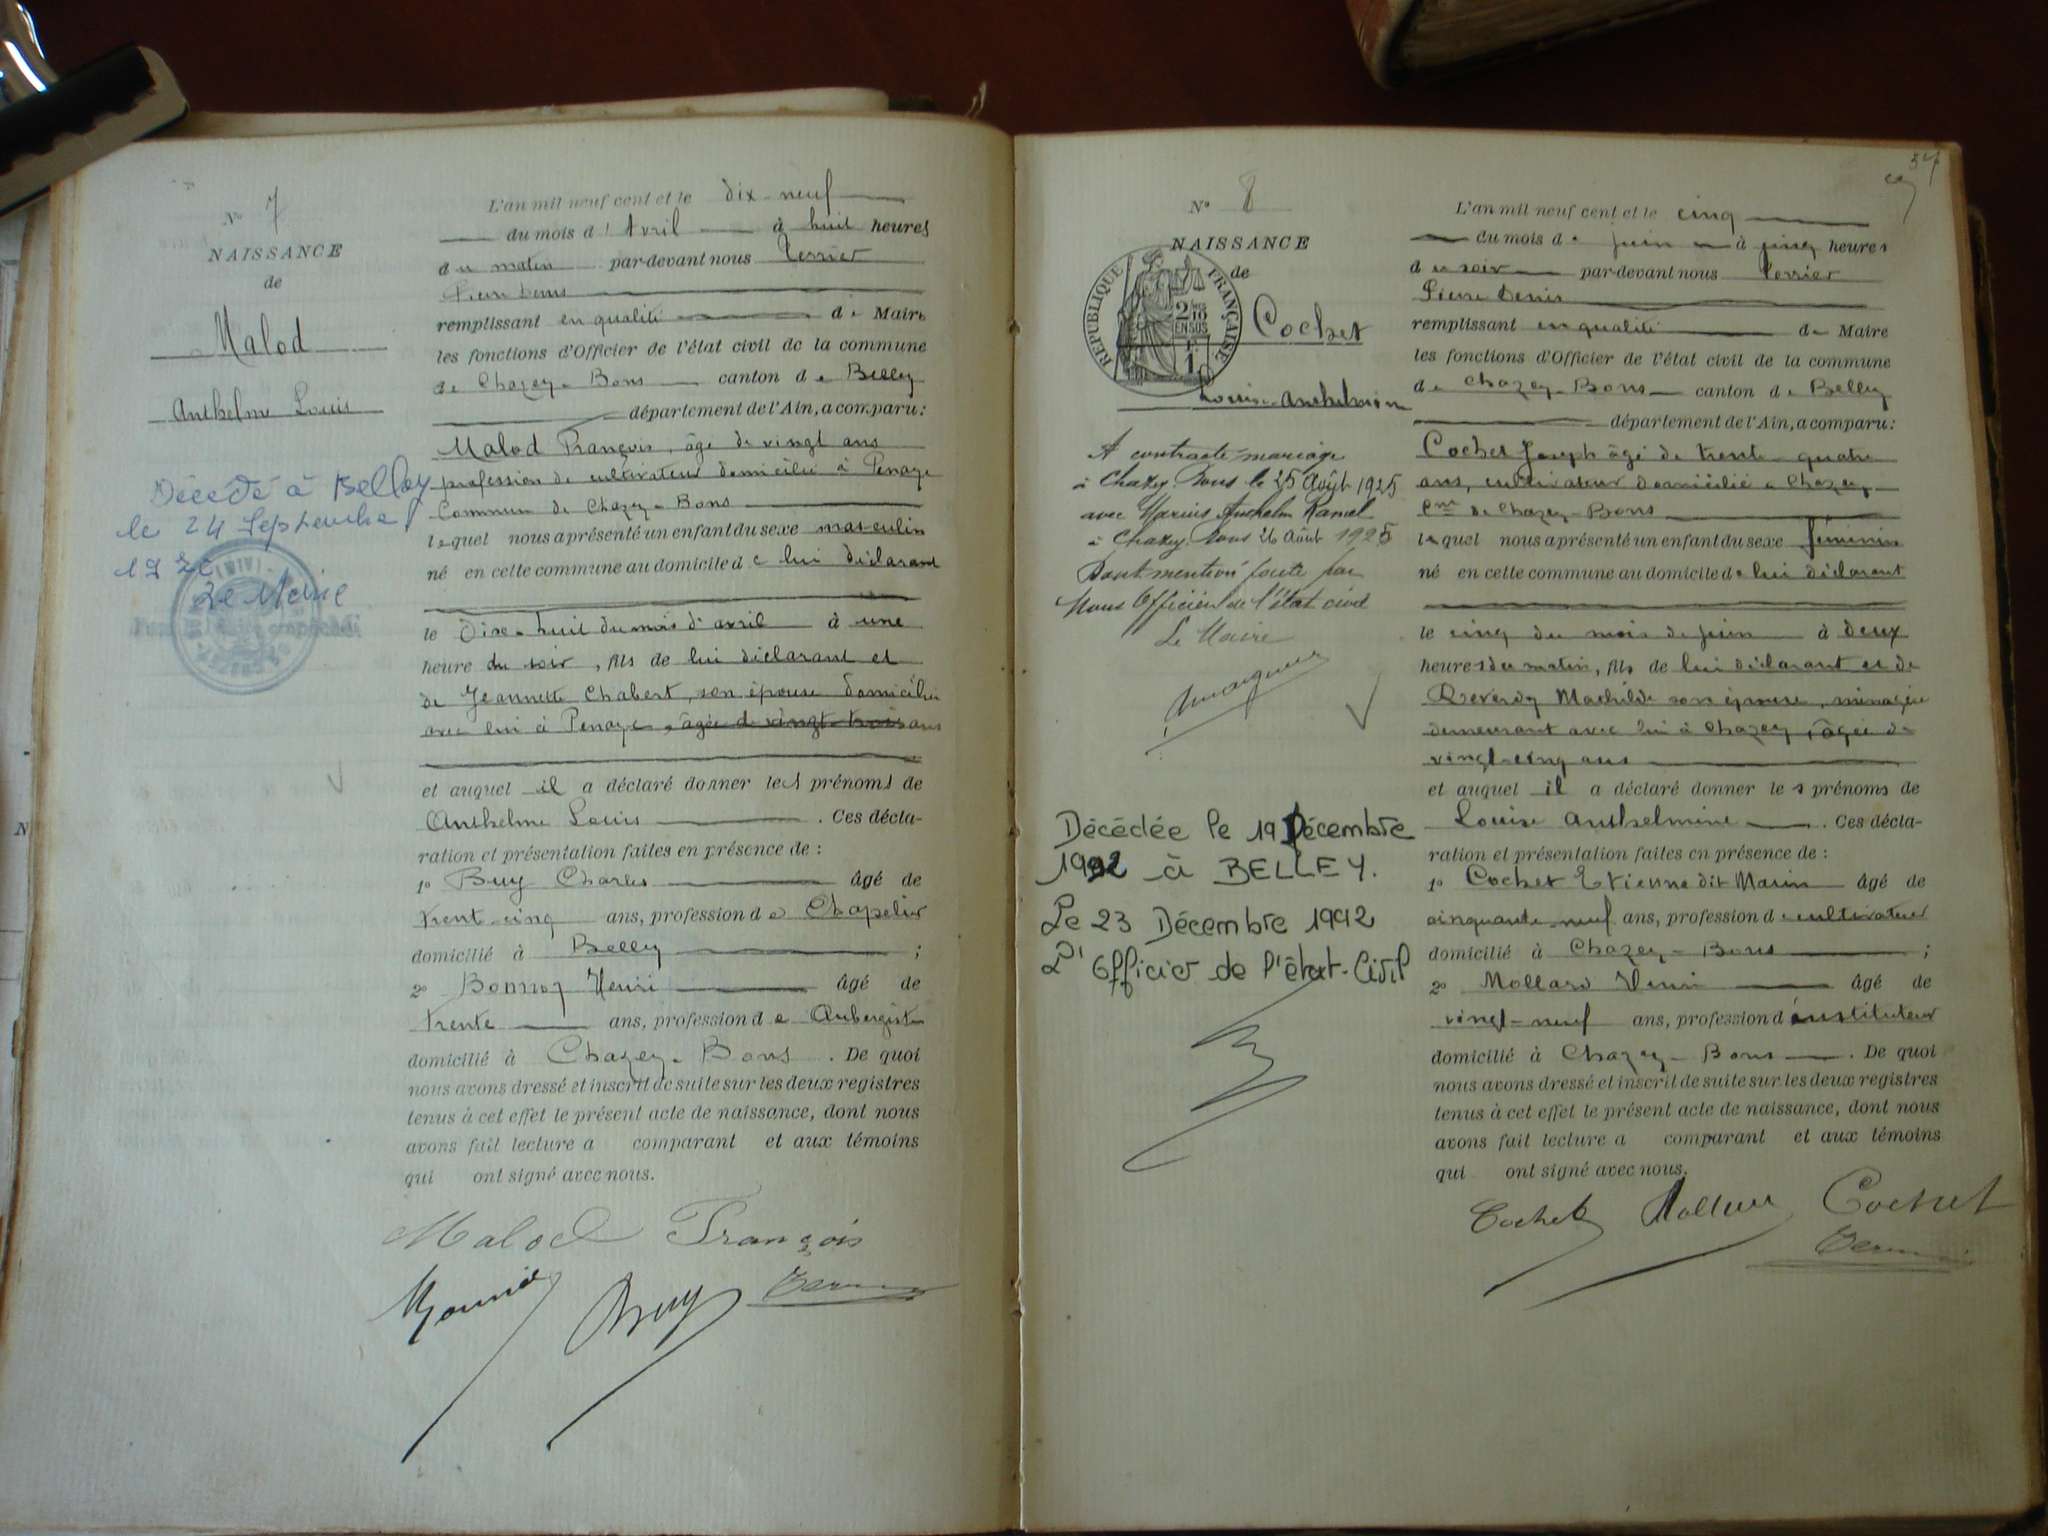 N° 7
NAISSANCE
de
Malod
Anthelme Louis
Décédé à Belley
le 24 Septembre
Le Maire
L'an mil neuf cent et le dix-neuf
du mois d'Avril à huit heures
du matin par-devant nous Terrier
Pierre Denis
remplissant en qualité de Maire
les fonctions d'Officier de l'état civil de la commune
de Chazey-Bons canton de Belley
département de l'Ain, a comparu:
Malod François, âgé de vingt ans
profession de cultivateur domicilié à Penaye
Commune de Chazey-Bons
lequel nous a présenté un enfant du sexe masculin
né en cette commune au domicile de lui déclarant
le Dix-huit du mois d'avril à une
heure du soir, fils de lui déclarant et
de Jeannette Chabert, son épouse domiciliée
avec lui à Penaye, âgée de vingt-trois ans
et auquel il a déclaré donner les prénoms de
Anthelme Louis. Ces décla-
ration et présentation faites en présence de:
1° Buy Charles âgé de
trent-cinq ans, profession de Chapelier
domicilié à Belley;
2° Bonnoz Henri âgé de
trente ans, profession de Aubergiste
domicilié à Chazey-Bons. De quoi
nous avons dressé et inscrit de suite sur les deux registres
tenus à cet effet le présent acte de naissance, dont nous
avons fait lecture a comparant et aux témoins
qui ont signé avec nous.
Malod François
Buy
N° 8
NAISSANCE
de
REPUBLIQUE FRANÇAISE
2/10 EN SUS
Cochet
Louise Anthelmine
A contracté mariage
à Chazey-Bons le 25 Août 1925
avec Marius Anthelme Ramel
à Chazey-Bons 26 Août 1925
Dont mention faite par
Nous Officier de l'état civil
Le Maire
Décédée le 19 Décembre
1992 à BELLEY.
Le 23 Décembre 1992
L'Officier de l'état-Civil
L'an mil neuf cent et le cinq
du mois de juin à cinq heures
du soir par-devant nous Terrier
Pierre Denis
remplissant en qualité de Maire
les fonctions d'Officier de l'état civil de la commune
de Chazey-Bons canton de Belley
département de l'Ain, a comparu:
Cochet Joseph âgé de trente-quatre
ans, cultivateur domicilié à Chazey
Cne de Chazey-Bons
lequel nous a présenté un enfant du sexe féminin
né en cette commune au domicile de lui déclarant
le cinq du mois de juin à deux
heures du matin, fils de lui déclarant et de
Reverdy Mathilde son épouse, ménagère
demeurant avec lui à Chazey, âgée de
vingt-cinq ans
et auquel il a déclaré donner les prénoms de
Louise Anthelmine. Ces décla-
ration et présentation faites en présence de:
1° Cochet Etienne dit Marin âgé de
cinquante-neuf ans, profession de cultivateur
domicilié à Chazey-Bons;
2° Mollard âgé de
vingt-neuf ans, profession d'instituteur
domicilié à Chazey-Bons. De quoi
nous avons dressé et inscrit de suite sur les deux registres
tenus à cet effet le présent acte de naissance, dont nous
avons fait lecture a comparant et aux témoins
qui ont signé avec nous.
Cochet Cochet